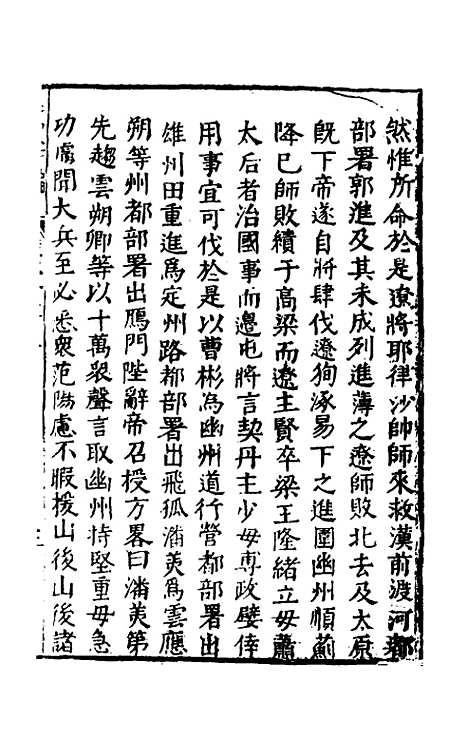 然惟所命於是遼將耶律沙帥師來救漢前渡河都
部署郭進及其未成列進薄之遼師敗北去及太原
旣下帝遂自將肆伐遼狥涿易下之進圍幽州順薊
降巳師敗績于高梁而遼主賢卒梁王隆緒立毋蕭
太后者治國事而邊屯將言契丹主少毋專政嬖倖
用事宜可伐於是以曹彬為幽州道行營都部署出
雄州田重進爲定州路都部署出飛孤潘美爲雲應
朔等州都部署出鴈門陛辭帝召授方畧曰潘美第
先趨雲朔卿等以十萬衆聲言取幽州持堅重毋急
功虜聞大兵至必悉衆范陽慮不暇援山後山後諸